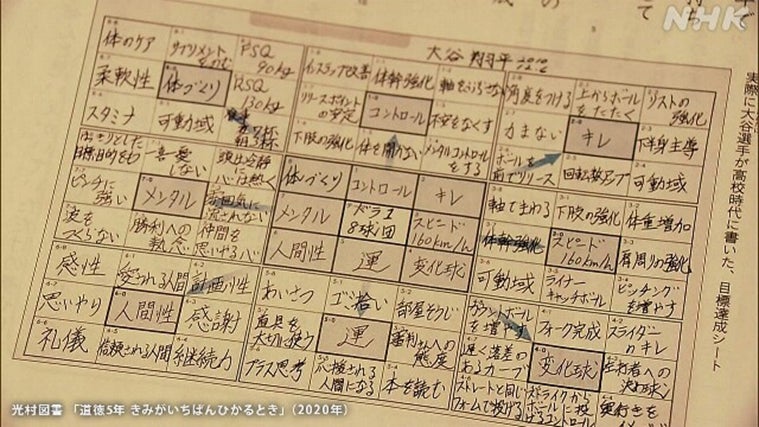 NHK
て
持ち
大谷 翔平
実際に大谷選手が高校時代に書いた、目標達成シート
体のケア
サプリメントをのむ
FSQ 90kg
インステップ改善
体幹強化
軸をぶらさない
角度をつける
上からボールをたたく
リストの強化
柔軟性
体づくり
RSQ 130kg
リリースポイントの安定
コントロール
不安をなくす
力まない
キレ
下半身主導
スタミナ
可動域
食事 夜7杯 朝3杯
下肢の強化
体を開かない
メンタルコントロールをする
ボールを前でリリース
回転数アップ
可動域
はっきりとした目標、目的をもつ
一喜一憂しない
頭は冷静に心は熱く
体づくり
コントロール
キレ
軸でまわる
下肢の強化
体重増加
ピンチに強い
メンタル
雰囲気に流されない
メンタル
ドラ1 8球団
スピード 160km/h
体幹強化
スピード 160km/h
肩周りの強化
波をつくらない
勝利への執念
仲間を思いやる心
人間性
運
変化球
可動域
ライナーキャッチボール
ピッチングを増やす
感性
愛される人間
計画性
あいさつ
ゴミ拾い
部屋そうじ
カウントボールを増やす
フォーク完成
スライダーのキレ
思いやり
人間性
感謝
道具を大切に使う
運
審判さんへの態度
遅く落差のあるカーブ
変化球
左打者への決め球
礼儀
信頼される人間
継続力
プラス思考
応援される人間になる
本を読む
ストレートと同じフォームで投げる
ストライクからボールに投げるコントロール
奥行きを
光村図書 「道徳5年 きみがいちばんひかるとき」(2020年)